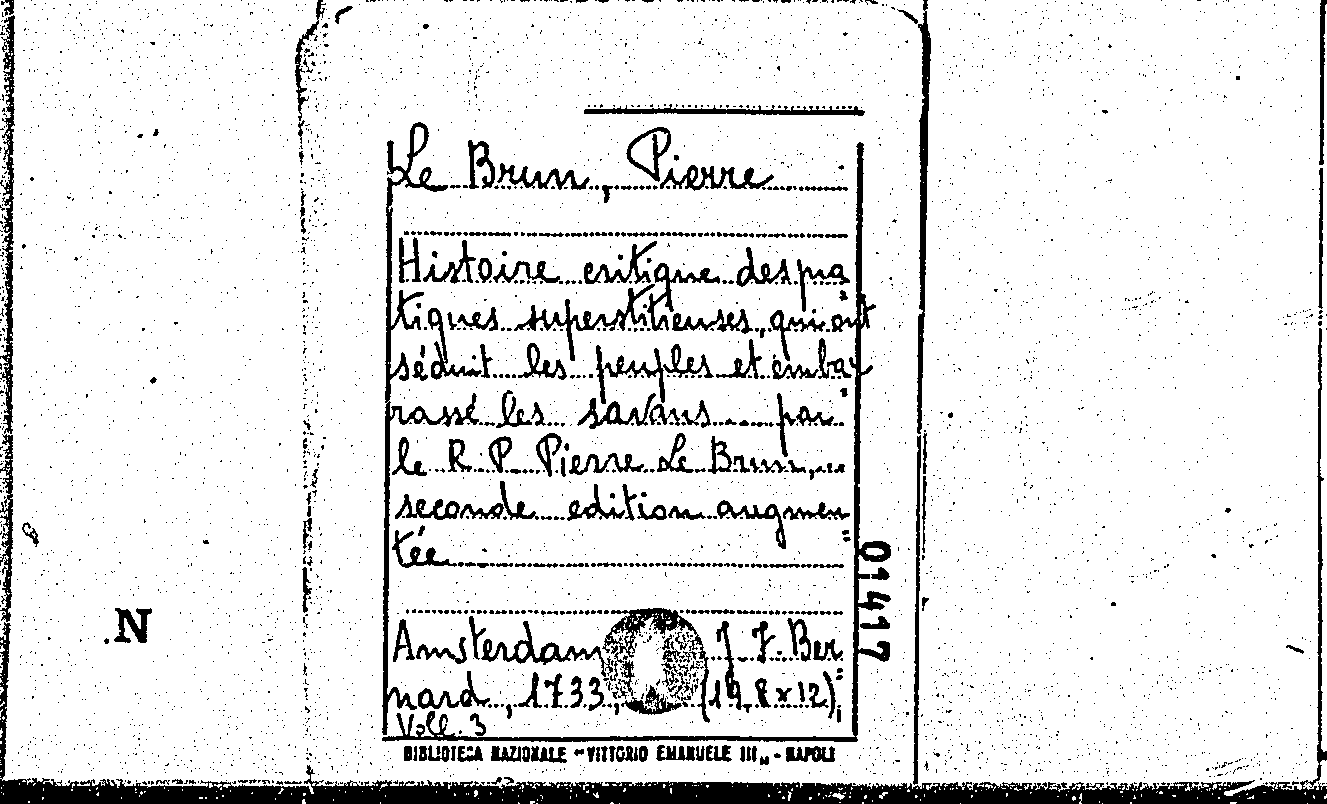 Le Brun, Pierre
Histoire critique des pra=
tiques superstitieuses, qui ont
séduit les peuples et embar=
rassé les savans... par
le R. P. Pierre Le Brun,...
seconde edition augmen=
tée...
Amsterdam J. F. Ber=
nard, 1733, (19,8x12);
Voll. 3
BIBLIOTECA NAZIONALE "VITTORIO EMANUELE III" - NAPOLI
01417
N